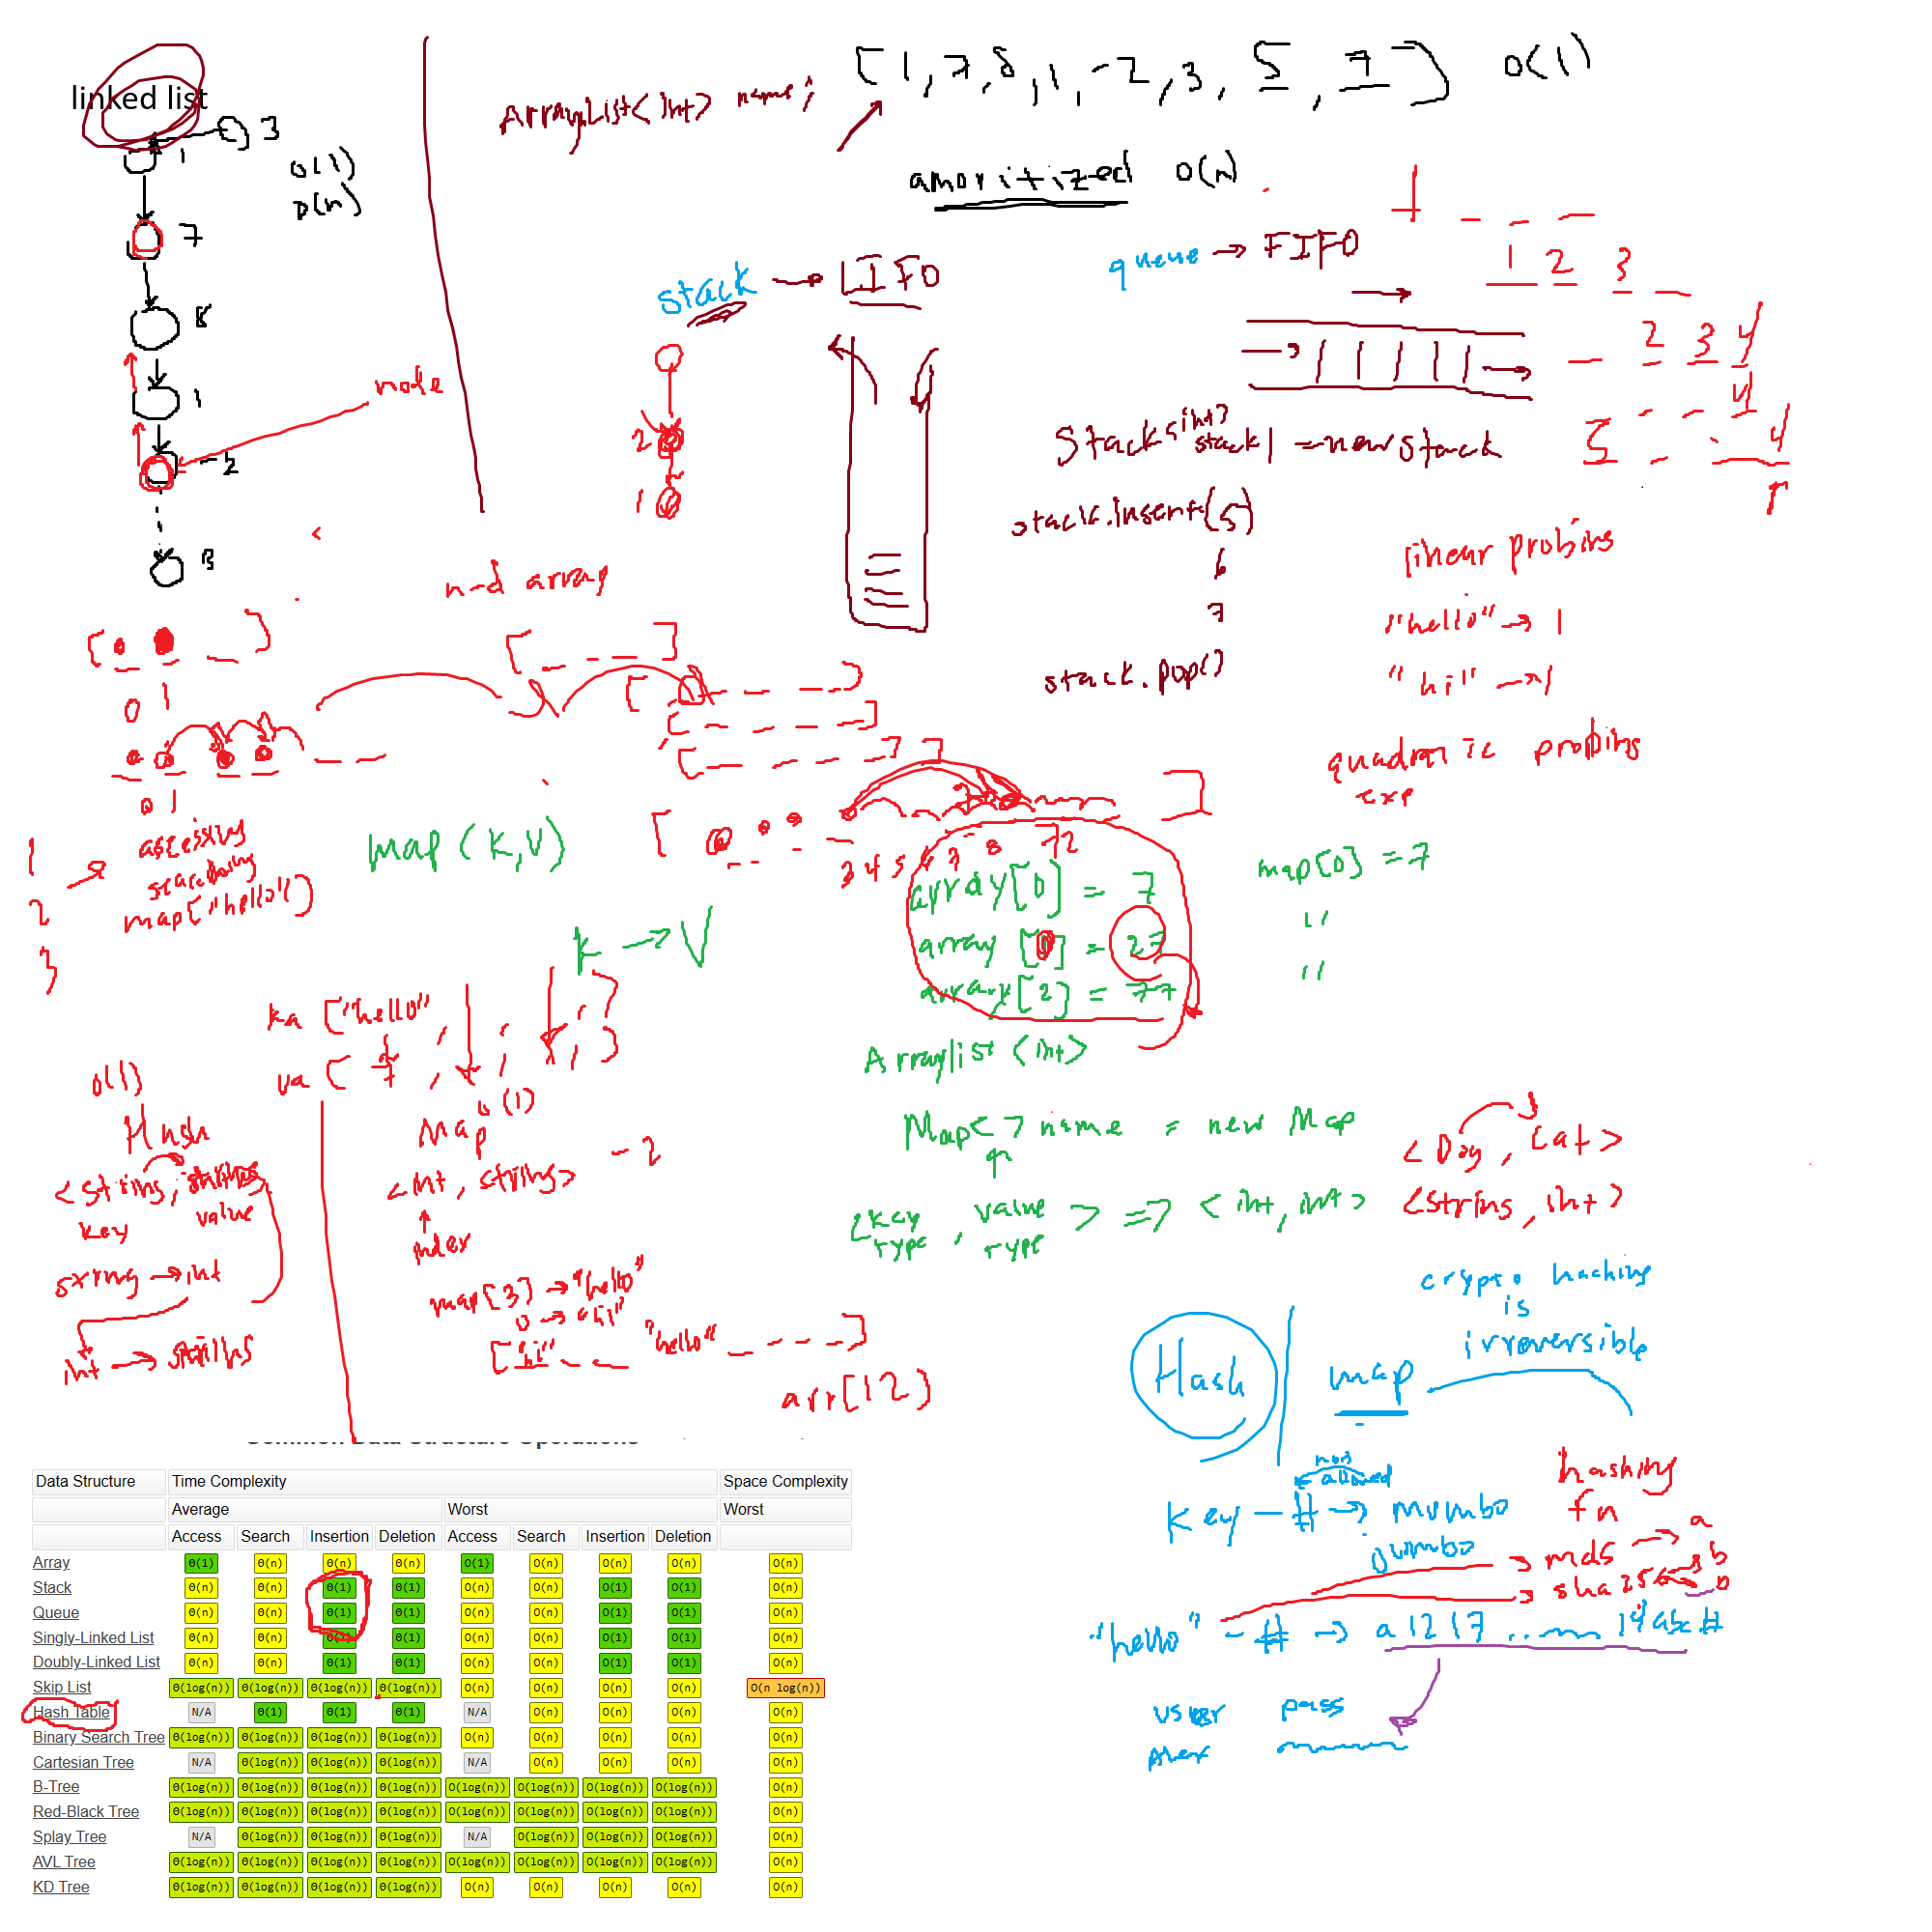 linked list
3
1
o(1)
o(n)
7
8
1
node
-2
ArrayList<int> name;
[1,7,8,1,-2,3,5,7] o(1)
amoritized o(n)
stack → LIFO
queue → FIFO
1 2 3
2 3 4
4
5 4
2
1
Stack<int> stack1 = new stack
stack.insert(5)
6
7
stack.pop()
n-d array
linear probing
"hello" → 1
"hi" → 1
quadratic probing
exp
0 1
0 1
1
2
3
accessing
searching
map["hello"]
map (K,V)
K → V
3 4 5 6 7 8 72
array[0] = 7
array [ ] = 27
array[2] = 77
map[0] = 7
"
"
Arraylist <int>
ka ["hello", , , , ]
va [ 7 , , , , ]
o(1)
Hash
<string, string>
key value
string → int
int → string
o(1)
Map
<int, string> -2
index
map[3] → "hello"
0 → "hi"
["hi" "hello" ]
arr[12]
Map< > name = new Map
<key type, value type> => <int, int>
<Dog, Cat>
<string, int>
crypto hashing
is
irreversible
Hash
map
not
allowed
key - # → mumbo
jumbo
hashing
fn
md5 → a
sha256 → b
"hello" - # → a1217 ..... 14abc#
user pass
Common Data Structure Operations
Data Structure Time Complexity Space Complexity
Average Worst Worst
Access Search Insertion Deletion Access Search Insertion Deletion
Array Θ(1) Θ(n) Θ(n) Θ(n) O(1) O(n) O(n) O(n) O(n)
Stack Θ(n) Θ(n) Θ(1) Θ(1) O(n) O(n) O(1) O(1) O(n)
Queue Θ(n) Θ(n) Θ(1) Θ(1) O(n) O(n) O(1) O(1) O(n)
Singly-Linked List Θ(n) Θ(n) Θ(1) Θ(1) O(n) O(n) O(1) O(1) O(n)
Doubly-Linked List Θ(n) Θ(n) Θ(1) Θ(1) O(n) O(n) O(1) O(1) O(n)
Skip List Θ(log(n)) Θ(log(n)) Θ(log(n)) Θ(log(n)) O(n) O(n) O(n) O(n) O(n log(n))
Hash Table N/A Θ(1) Θ(1) Θ(1) N/A O(n) O(n) O(n) O(n)
Binary Search Tree Θ(log(n)) Θ(log(n)) Θ(log(n)) Θ(log(n)) O(n) O(n) O(n) O(n) O(n)
Cartesian Tree N/A Θ(log(n)) Θ(log(n)) Θ(log(n)) N/A O(n) O(n) O(n) O(n)
B-Tree Θ(log(n)) Θ(log(n)) Θ(log(n)) Θ(log(n)) O(log(n)) O(log(n)) O(log(n)) O(log(n)) O(n)
Red-Black Tree Θ(log(n)) Θ(log(n)) Θ(log(n)) Θ(log(n)) O(log(n)) O(log(n)) O(log(n)) O(log(n)) O(n)
Splay Tree N/A Θ(log(n)) Θ(log(n)) Θ(log(n)) N/A O(log(n)) O(log(n)) O(log(n)) O(n)
AVL Tree Θ(log(n)) Θ(log(n)) Θ(log(n)) Θ(log(n)) O(log(n)) O(log(n)) O(log(n)) O(log(n)) O(n)
KD Tree Θ(log(n)) Θ(log(n)) Θ(log(n)) Θ(log(n)) O(n) O(n) O(n) O(n) O(n)